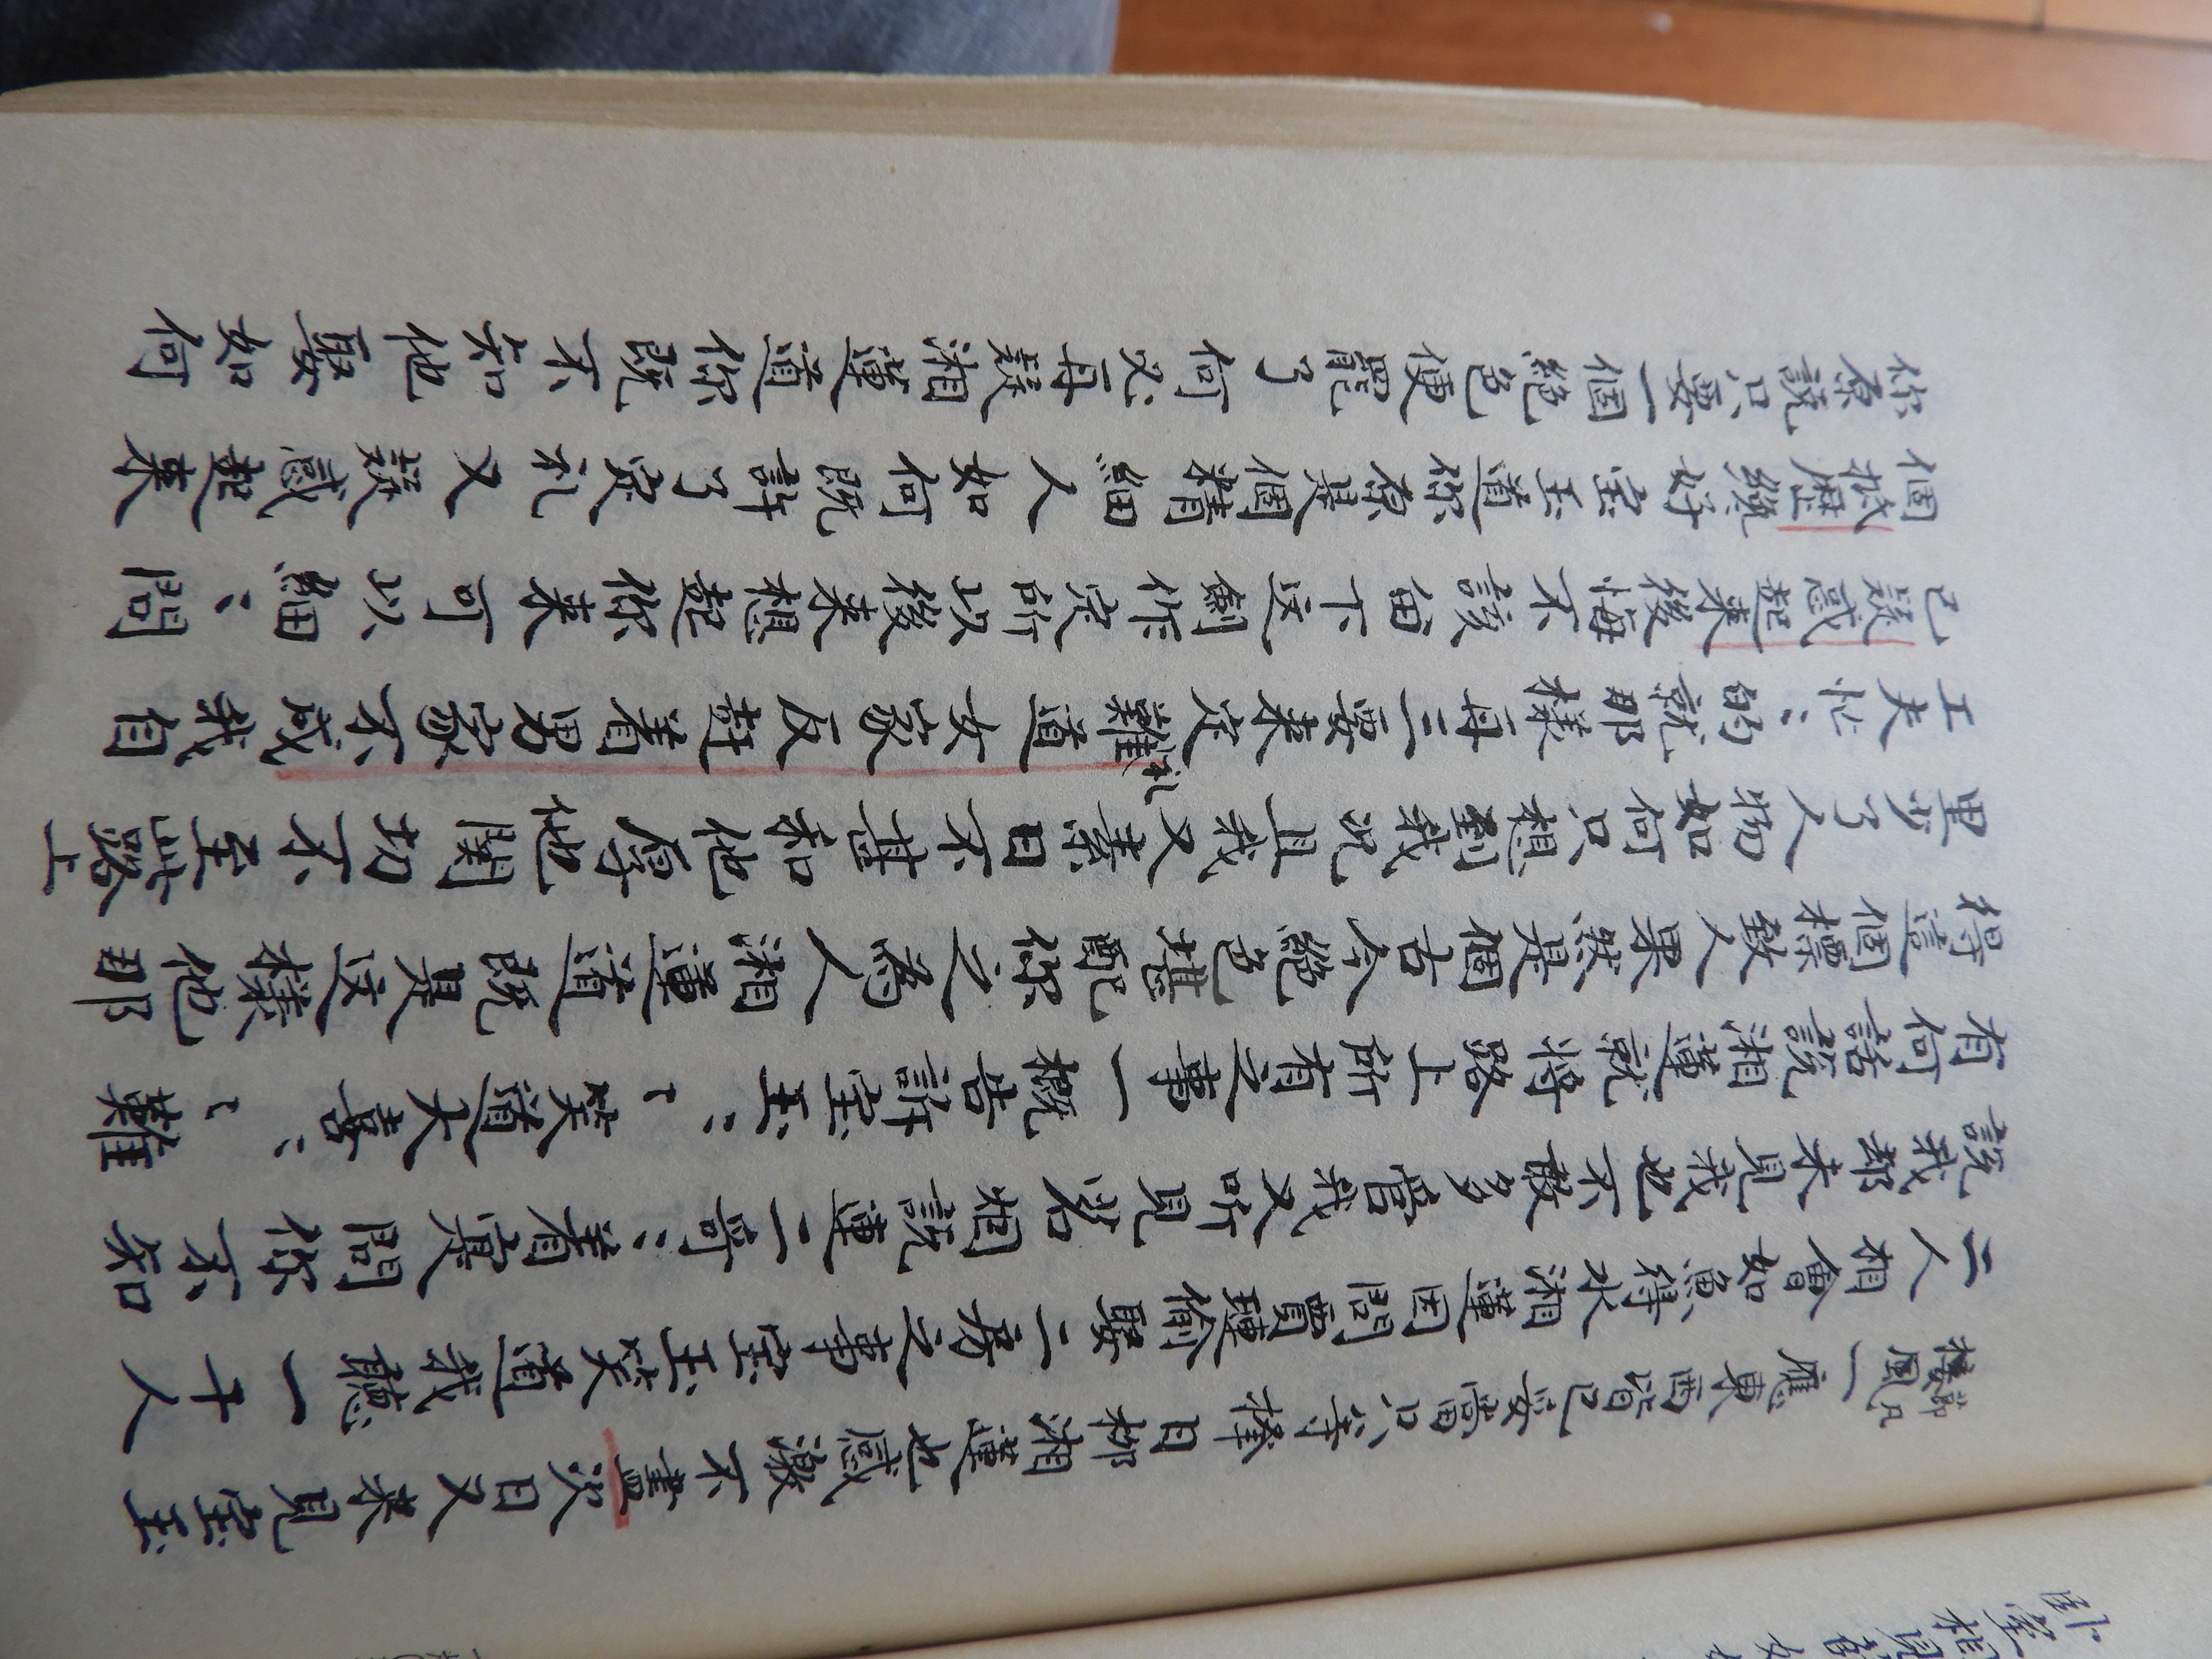 一應東西皆已妥當只等擇日柳湘蓮也感激不盡次日又來見宝玉
二人相會如魚得水湘蓮因問賈璉偷娶二房之事宝玉笑道我聽一干人
說我却未見我也不敢多管我又听見茗烟說璉二哥〻着寔問你不知
有何話說湘蓮就將路上所有之事一概告訴宝玉〻〻笑道大喜〻〻難
得這個標致人果然是個古今絕色堪配你之為人湘蓮道既是这樣他那
里少了人物如何只想到我况且我又素日不甚和他厚他関切不至此路上
工夫忙〻的就那樣再三要來定礼難道女家反赶着男家不成我自
己疑惑起來後悔不該畄下这劍作定所以後來想起你來可以細〻問
個抵歷纔好宝玉道你原是個精細人如何既許了定礼又疑惑起來
你原說只要一個絕色便罷了何必再疑湘蓮道你既不知他娶如何